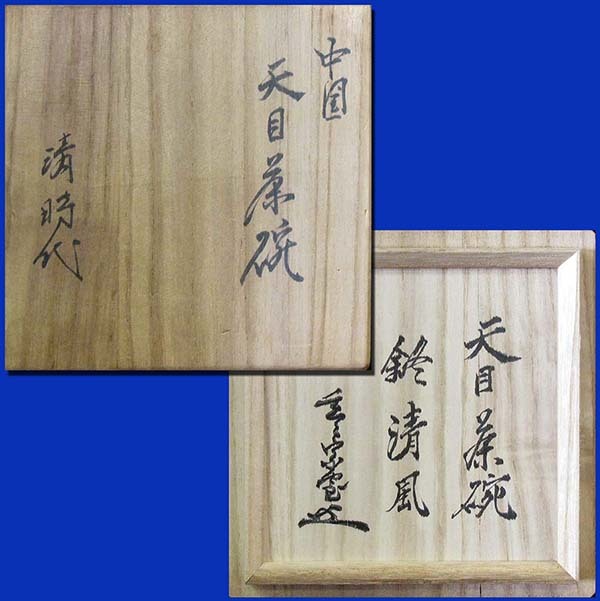 中国
天目茶碗
清時代
天目茶碗
銘清風